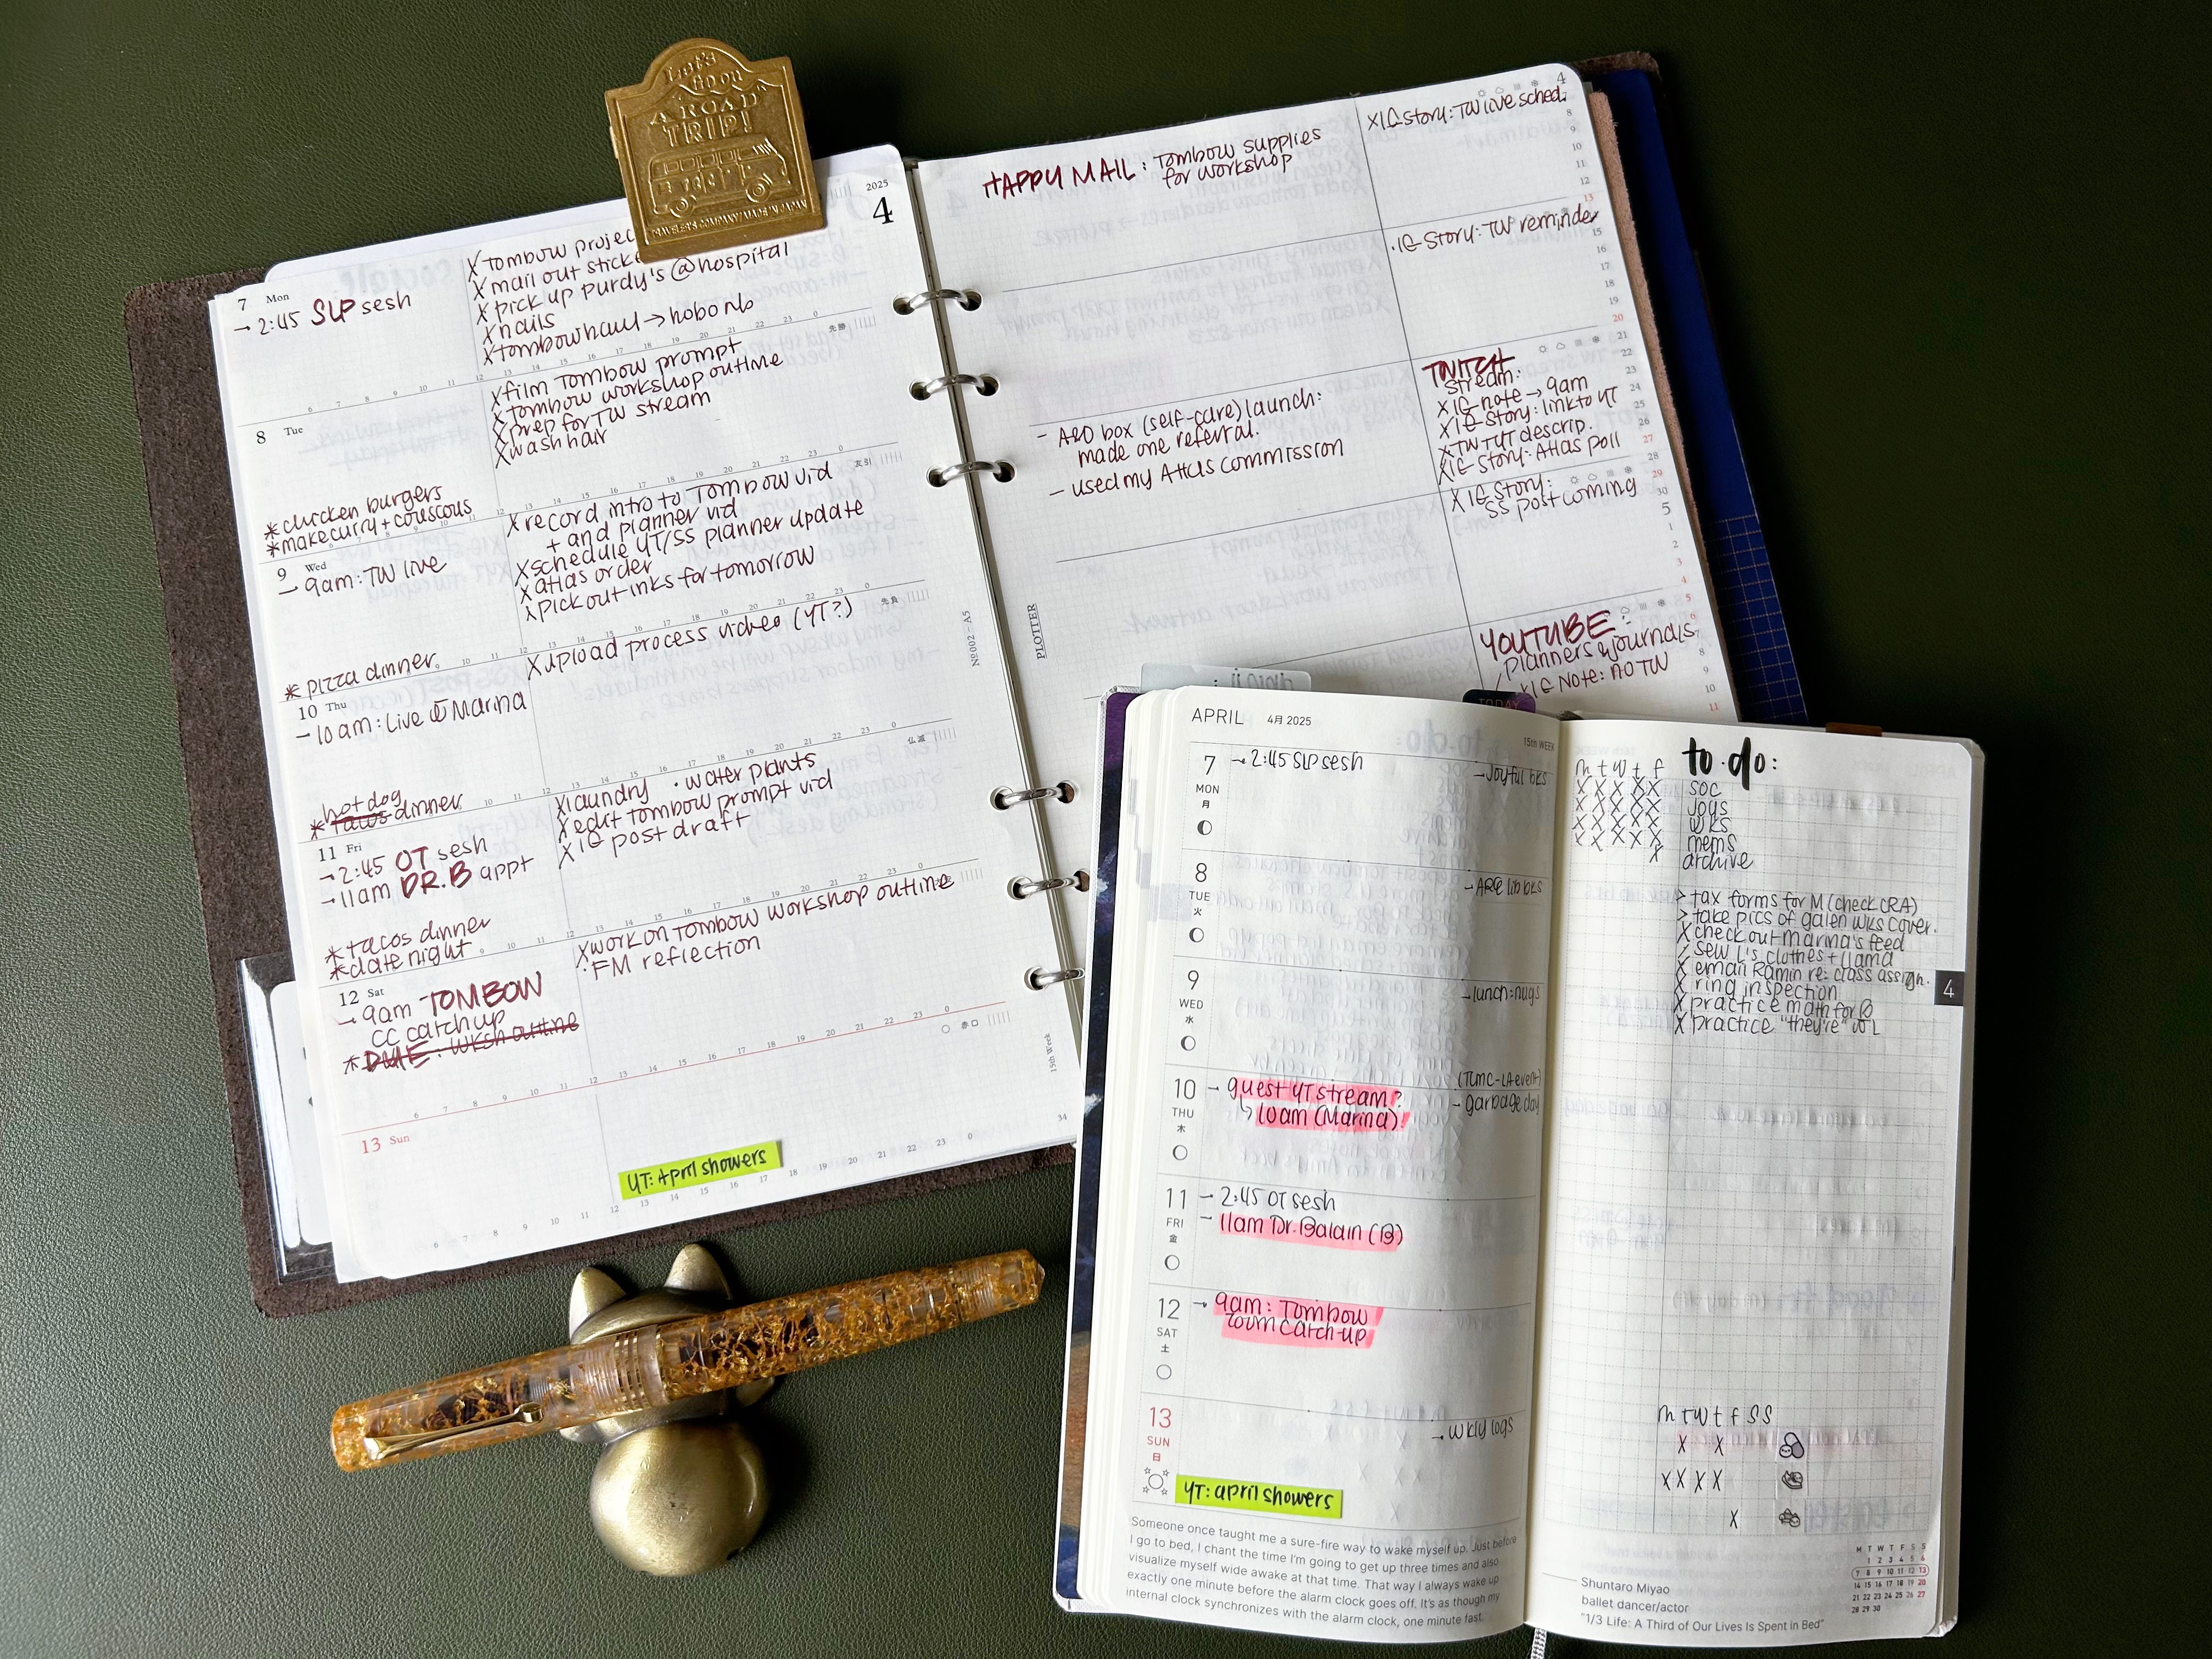 Let's
Go on
A ROAD
TRIP!
TRAVELER'S COMPANY MADE IN JAPAN
2025
4
7 Mon
→ 2:45 SLP sesh
X tombow projec
X mail out sticke
X pick up purdy's @hospital
X nails
X tombow haul → hobonb
8 Tue
X film Tombow prompt
X tombow workshop outline
X prep for TW stream
X wash hair
* chicken burgers
* make curry + couscous
9 Wed
→ 9am: TW live
X record intro to Tombow vid
+ and planner vid
X schedule YT/SS planner update
X atlas order
X pick out inks for tomorrow
* pizza dinner
10 Thu
- 10am: Live w Marina
X upload process video (YT?)
hot dog
* tacos dinner
11 Fri
→ 2:45 OT sesh
→ 11am DR. B appt
X laundry · water plants
X edit tombow prompt vid
X IG post draft
* tacos dinner
* date night
12 Sat
→ 9am TOMBOW
CC catch up
* DUE: wksh outline
X work on Tombow workshop outline
· FM reflection
13 Sun
YT: April showers
No002-A5
15th Week
34
PLOTTER
HAPPY MAIL: Tombow supplies
for workshop
- A&O box (self-care) launch:
made one referral.
- used my Atlas commission
X IG story: TW live sched.
· IG Story: TW reminder
TWITCH
stream:
X IG note → 9am
X IG story: link to YT
X TW TYT descrip.
X IG story: Atlas poll
X IG story:
SS post coming
YOUTUBE:
planners & journals
X IG Note: no TW
TODAY
APRIL 4月 2025
15th WEEK
7
MON
月
→ 2:45 SLP sesh
→ Joyful bks
8
TUE
火
→ ARC lib bks
9
WED
水
→ lunch: nugs
10
THU
木
→ guest YT stream?
↳ 10am (Marina)!
(TLMC-LA event)
- garbage day
11
FRI
金
→ 2:45 OT sesh
- 11am Dr. Balain (B)
12
SAT
土
→ 9am: Tombow
zoom catch-up
13
SUN
日
→ wkly logs
YT: april showers
Someone once taught me a sure-fire way to wake myself up. Just before
I go to bed, I chant the time I'm going to get up three times and also
visualize myself wide awake at that time. That way I always wake up
exactly one minute before the alarm clock goes off. It's as though my
internal clock synchronizes with the alarm clock, one minute fast.
to·do:
m t w t f
X X X X X soc
X X X X X joys
X X X X X wks
X X X X X mems
X archive
> tax forms for M (check CRA)
> take pics of galen wks cover.
X check out marina's feed
/ sew L's clothes + llama
X email Ramin re: class assign.
X ring inspection
X practice math for B
X practice "they're" w L
4
m t w t f s s
X X
X X X X
X
M T W T F S S
1 2 3 4 5 6
7 8 9 10 11 12 13
14 15 16 17 18 19 20
21 22 23 24 25 26 27
28 29 30
Shuntaro Miyao
ballet dancer/actor
"1/3 Life: A Third of Our Lives Is Spent in Bed"